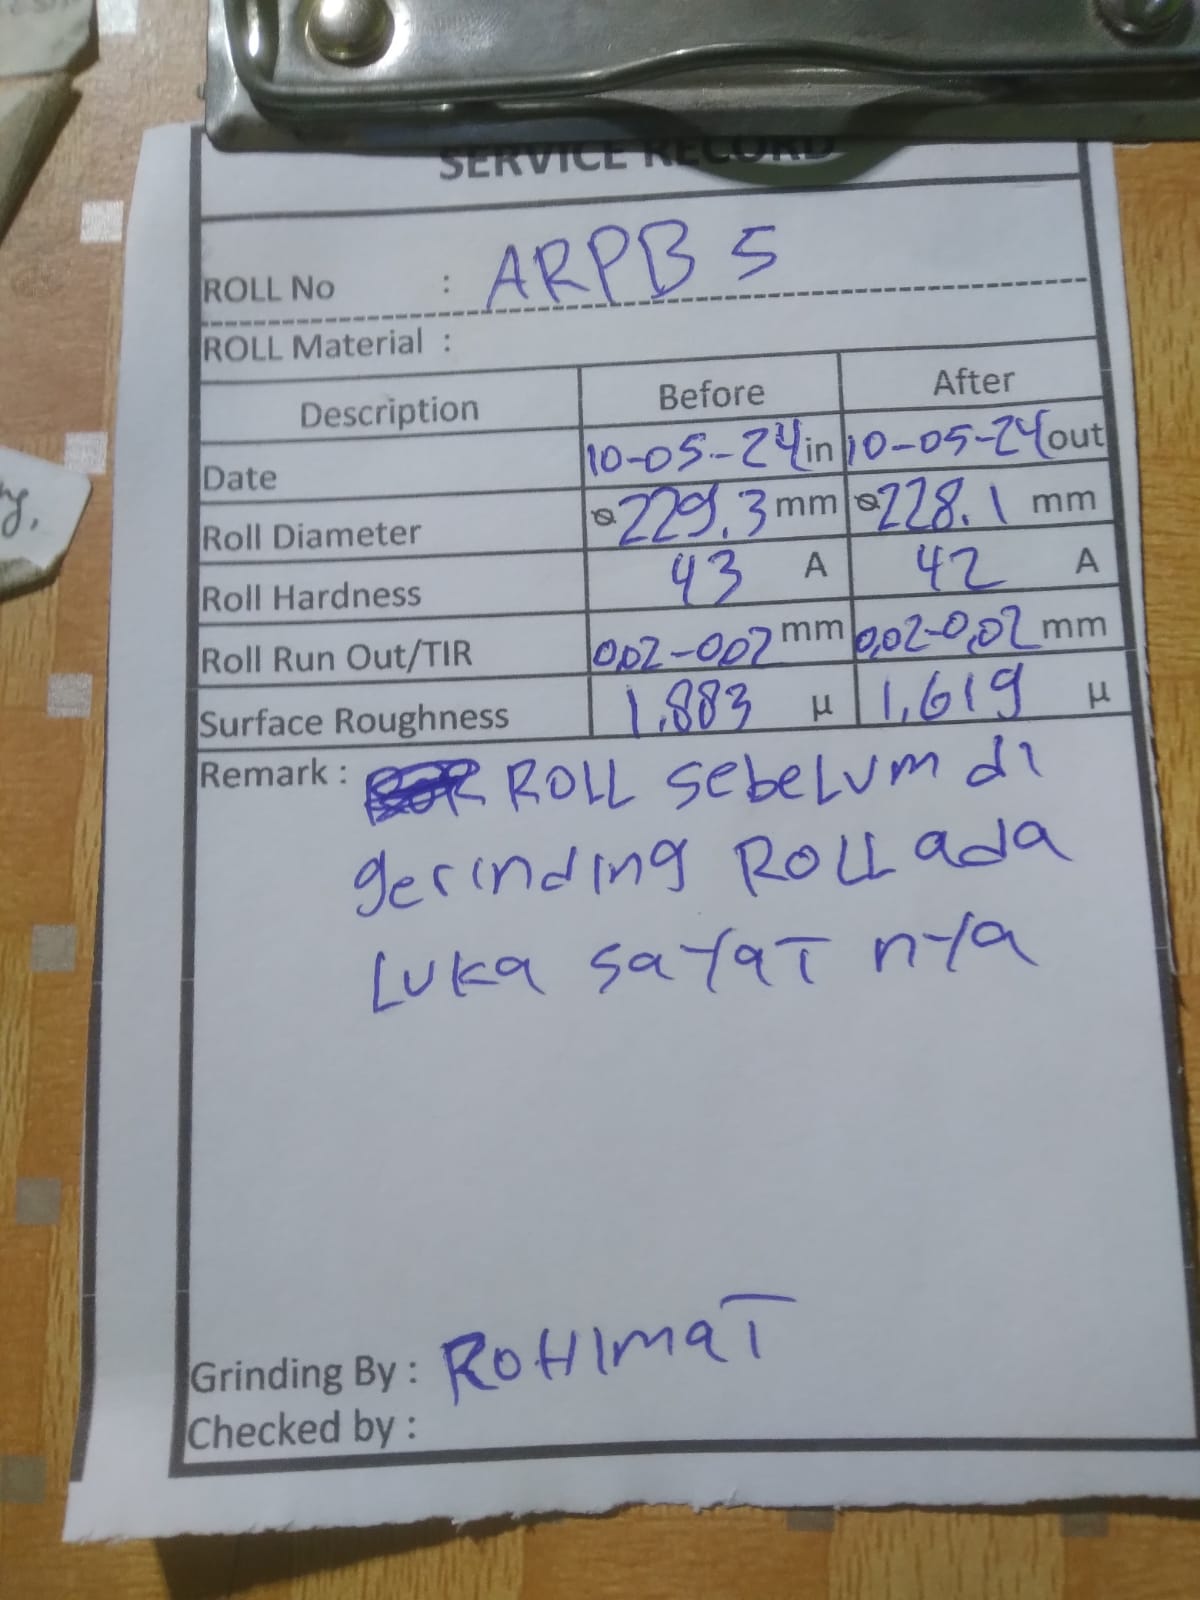 SERVICE RECORD
ROLL No : ARPB 5
ROLL Material :
Description Before After
Date 10-05-24 in 10-05-24 out
Roll Diameter ⌀229.3 mm ⌀228.1 mm
Roll Hardness 43 A 42 A
Roll Run Out/TIR 0,02-0,02 mm 0,02-0,02 mm
Surface Roughness 1.883 µ 1,619 µ
Remark : ROLL sebeLum di
gerinding ROLL ada
Luka sayaT nya
Grinding By : ROHImaT
Checked by :